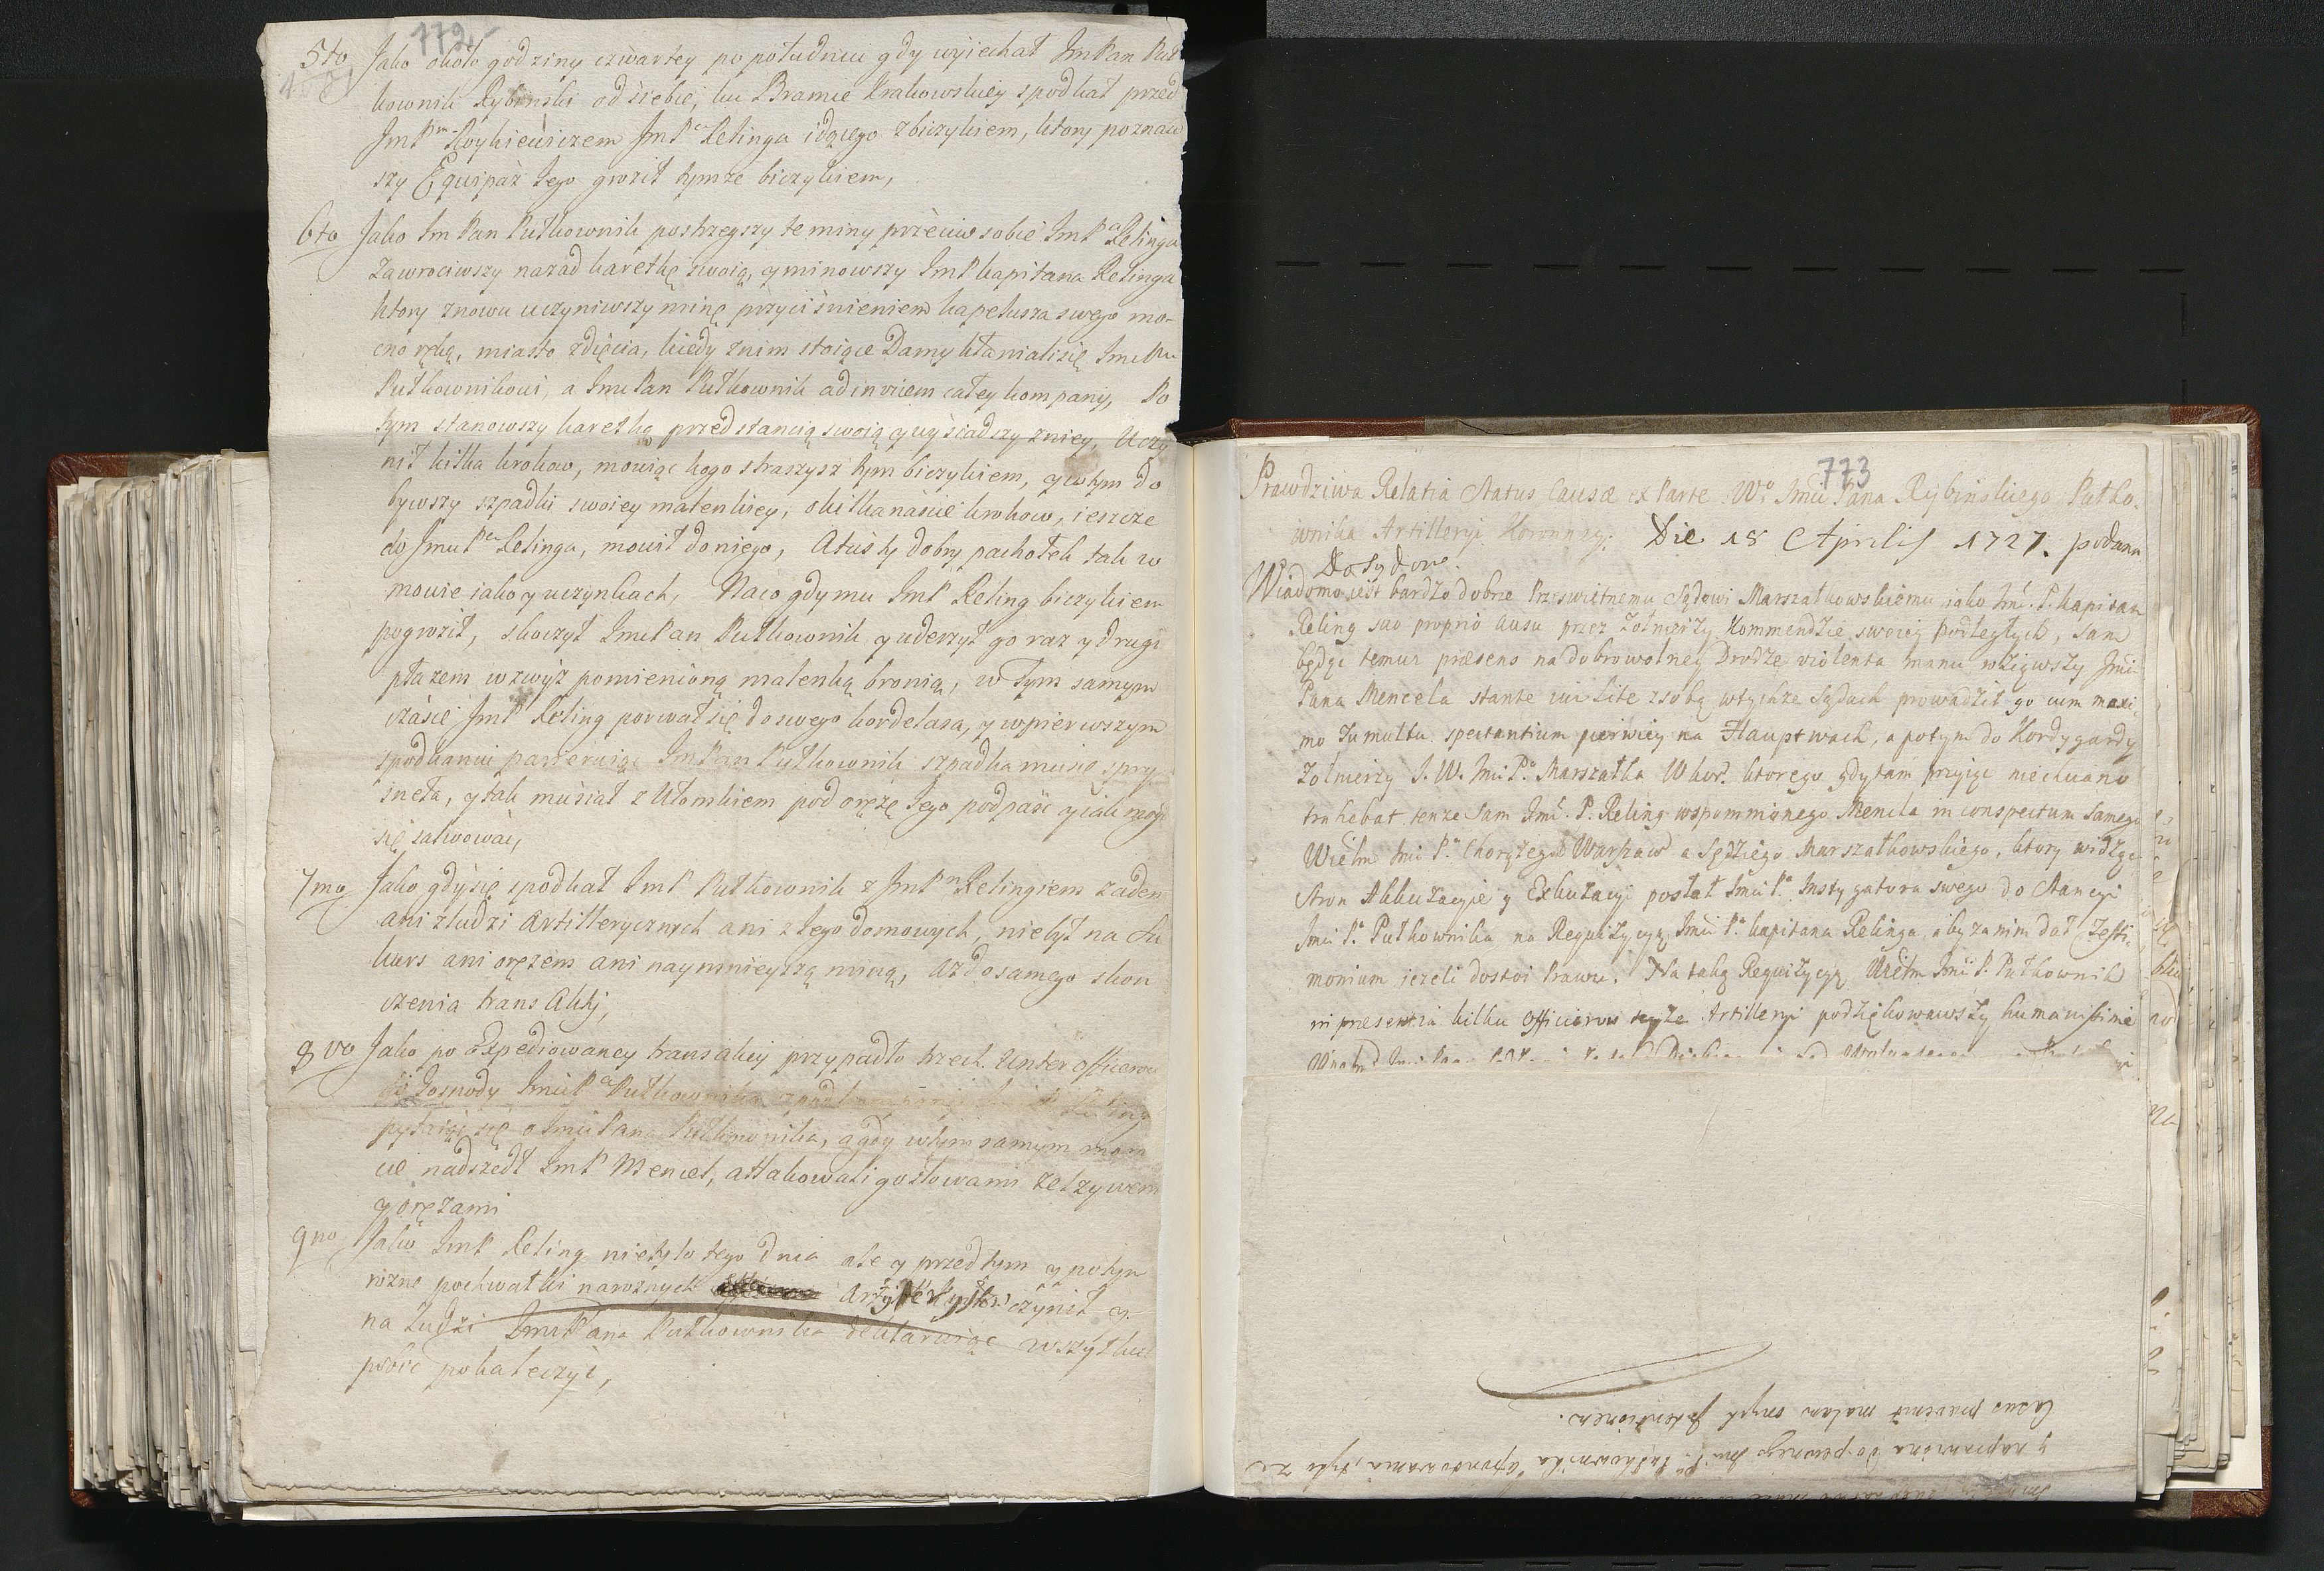 772
5to Jako około godziny czwartey po południu gdy wyiechał ImPan Puł
kownik Rybinski od siebie, ku Bramie Krakowskiey spodkał przed
ImP Imp Relinga idącego zbiczykiem, ktory poznaw
szy Equipaż Iego groził tymże biczykiem,
6to Jako ImPan Pułkownik postrzegszy te miny przeciw sobie ImPa Relinga
Zawrociwszy nazad karetkę swoią, y minowszy ImP. kapitana Relinga
ktory znowu uczyniwszy minę przyciśnieniem kapelusza swego mo-
cno ręką, miasto zdięcia, kiedy znim stoiące Damy kłaniali się Imu Pnu
Pułkownikowi, a Imu Pan Pułkownik ad invicem całey kompany, Po
tym stanowszy karetką przed stancią swoią y wysiadszy zniey, Uczy
nił kilka krokow, mowiąc kogo straszysz tym biczykiem, y wtym do
bywszy szpadki swoiey malenkiey, o kilkanaście krokow, ieszcze
do Imu Pa Relinga, mowił do niego, Atuś ty dobry pachołek tak w
mowie iako y uczynkach, Naco gdy mu ImP Reling biczykiem
pogroził, skoczył ImuPan Pułkownik y uderzył go raz y drugi
płazem wzwyż pomienioną malenką bronią, w Tym samym
czásie ImP Reling porwał się do swego kordelasa, y wpierwszym
spodkaniu parieruiąc ImPan Pułkownik szpadka mu się spry
sneła, y tak musiał z Ułomkiem pod orężę Iego podpaść y iak mogł
się salwować,
7mo Jako gdy się spodkał ImP Pułkownik z ImPn Relingiem żaden
ani zludzi Artillerycznych ani z Iego domowych, nie był na Su
kurs ani orężem ani naymnieyszą miną, aż do samego skon
czenia transakty,
8vo Jako po Expediowaney transakcy przypadło trzech Unter officerow
do Gospody ImuPa Pułkownika
pytaiąc się o ImuPana Pułkownika, a gdy wtym samym mom
cie nadszedł ImP Mencel, attakowali go słowami zelzywem
y orężami
9no Jako ImP Reling nietylo tego dnia ale y przed tym y potym
rożne pochwałki narożnych czynił y
na ludzi ImuPana Pułkownika deklaruiąc wszystkich
pokaleczyć,
773
Prawdziwa Relatia Status Causæ ex Parte Wo Imci Pana Rybińskiego Pułko-
wnika Artilleryi Koronney. Die 18 Aprilis 1727. podana
Do Sądow.
Wiadomo iest bardzo dobrze Prześwietnemu Sądowi Marszałkowskiemu iako Imć. P. kapitan
Reling suo proprio ausu przez żołnierzy Kommendzie swoiey podległych, sam
będąc temuż præsens na dobrowolney Drodze violenta manu wziąwszy Imci
Pana Mencela stante lite zsobą wtychże Sądach prowadził go cum maxi-
mo Tumultu spectantium pierwiey na Hauptwach, a potym do Kordygardy
żołnierzy J. W. Imci Pa Marszałka W. kor. ktorego gdy tam przyiąc niechciano
trahebat tenże sam Imć. P. Reling wspomnionego Mencla in conspectum samego
Wielm Imci Pa Chorążego Warszaw a Sędziego Marszałkowskiego, ktory widząc
stron Akkuzacyie y Exkuzacyi posłał Imci Pa Instygatora swego do Stancyi
Imci Pa Pułkownika na Requizycyą Imci Pa kapitana Relinga, aby za nim dał Testi-
monium ieżeli dostoi Prawu. Na taką Requizycyą Wielm Imci P. Pułkownik
in presentia kilku Officierow teyże Artilleryi podziękowawszy humanissime
Casus prævenit malam onych intentionem.
y naprawiona do pewnego Imci Pa Pułkownika aportowania, tylo że